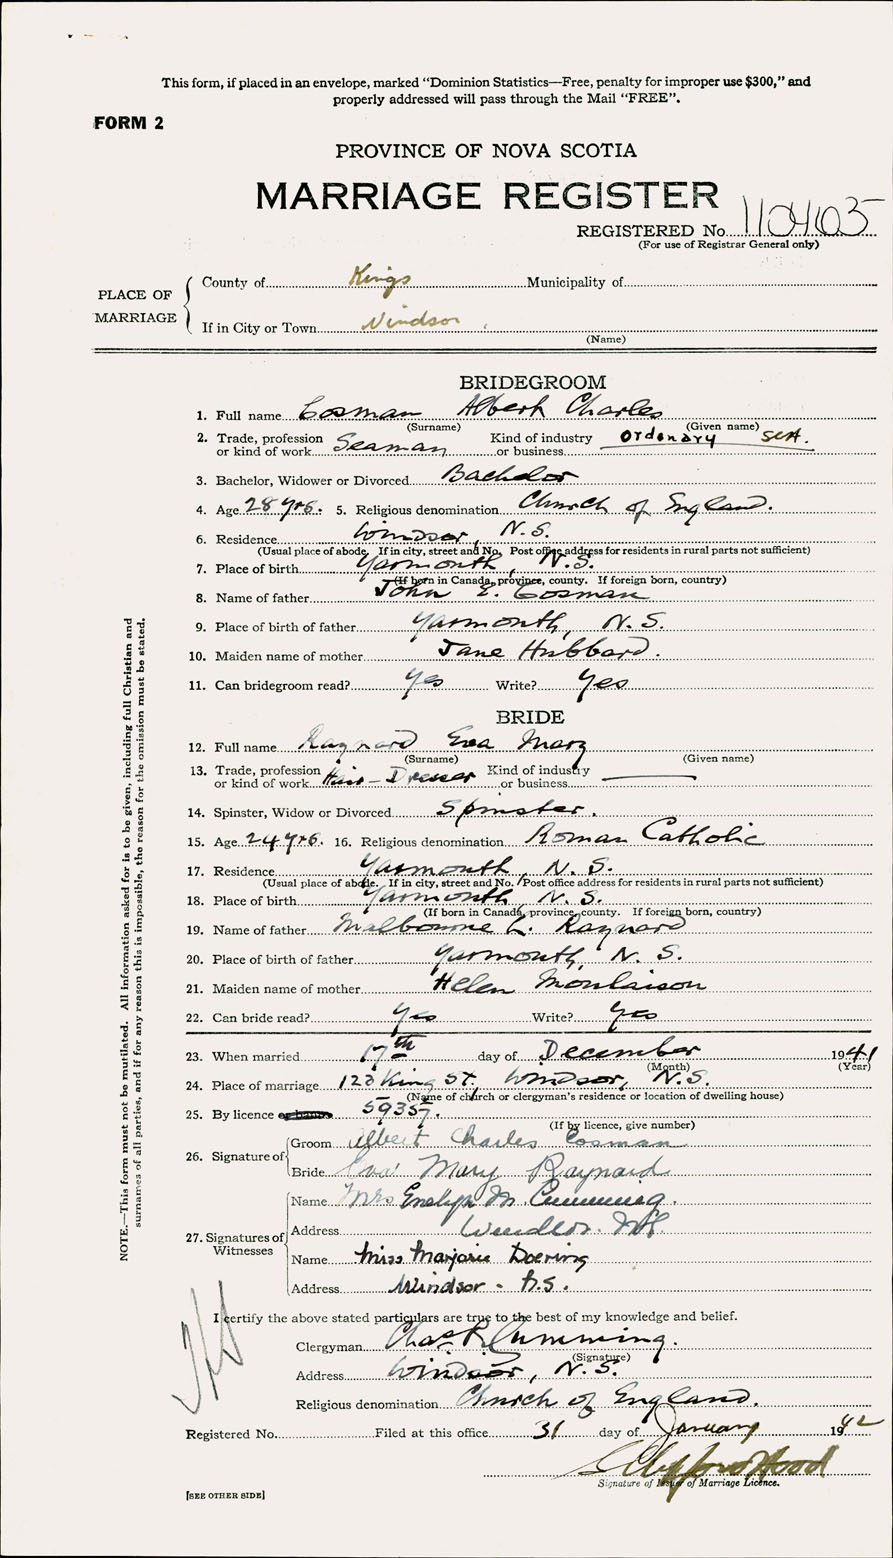 This form, if placed in an envelope, marked "Dominion Statistics—Free, penalty for improper use $300," and
properly addressed will pass through the Mail "FREE".
FORM 2
PROVINCE OF NOVA SCOTIA
MARRIAGE REGISTER
REGISTERED No.
(For use of Registrar General only)
PLACE OF MARRIAGE
County of Kings Municipality of
If in City or Town Windsor
(Name)
BRIDEGROOM
1. Full name Cosman Albert Charles
(Surname) (Given name)
2. Trade, profession or kind of work Seaman Kind of industry or business ordenary sea.
3. Bachelor, Widower or Divorced Bachelor
4. Age 28 yrs. 5. Religious denomination Church of England.
6. Residence Windsor, N.S.
(Usual place of abode. If in city, street and No. Post office address for residents in rural parts not sufficient)
7. Place of birth Yarmouth, N.S.
(If born in Canada, province, county. If foreign born, country)
8. Name of father John E. Cosman
9. Place of birth of father Yarmouth, N.S.
10. Maiden name of mother Jane Hubbard.
11. Can bridegroom read? Yes Write? Yes
BRIDE
12. Full name Raynard Eva Mary
(Surname) (Given name)
13. Trade, profession or kind of work Hair-Dresser Kind of industry or business
14. Spinster, Widow or Divorced Spinster.
15. Age 24 yrs. 16. Religious denomination Roman Catholic
17. Residence Yarmouth, N.S.
(Usual place of abode. If in city, street and No. Post office address for residents in rural parts not sufficient)
18. Place of birth Yarmouth, N.S.
(If born in Canada, province, county. If foreign born, country)
19. Name of father Malbourne L. Raynard
20. Place of birth of father Yarmouth, N.S.
21. Maiden name of mother Helen Moulaison
22. Can bride read? Yes Write? Yes
23. When married 17th day of December 1941
(Month) (Year)
24. Place of marriage King St., Windsor, N.S.
(Name of church or clergyman's residence or location of dwelling house)
25. By licence 59357.
(If by licence, give number)
26. Signature of
Groom Albert Charles Cosman
Bride Eva Mary Raynard
27. Signatures of Witnesses
Name Mrs Evelyn M Cumming.
Address Windsor. N.S.
Name Miss Marjorie Doering
Address Windsor - N.S.
I certify the above stated particulars are true to the best of my knowledge and belief.
Clergyman Chas R. Cumming.
(Signature)
Address Windsor, N.S.
Religious denomination Church of England.
Registered No. Filed at this office 31 day of January 1942
Signature of Issuer of Marriage Licence.
[SEE OTHER SIDE]
NOTE.—This form must not be mutilated. All information asked for is to be given, including full Christian and
surnames of all parties, and if for any reason this is impossible, the reason for the omission must be stated.